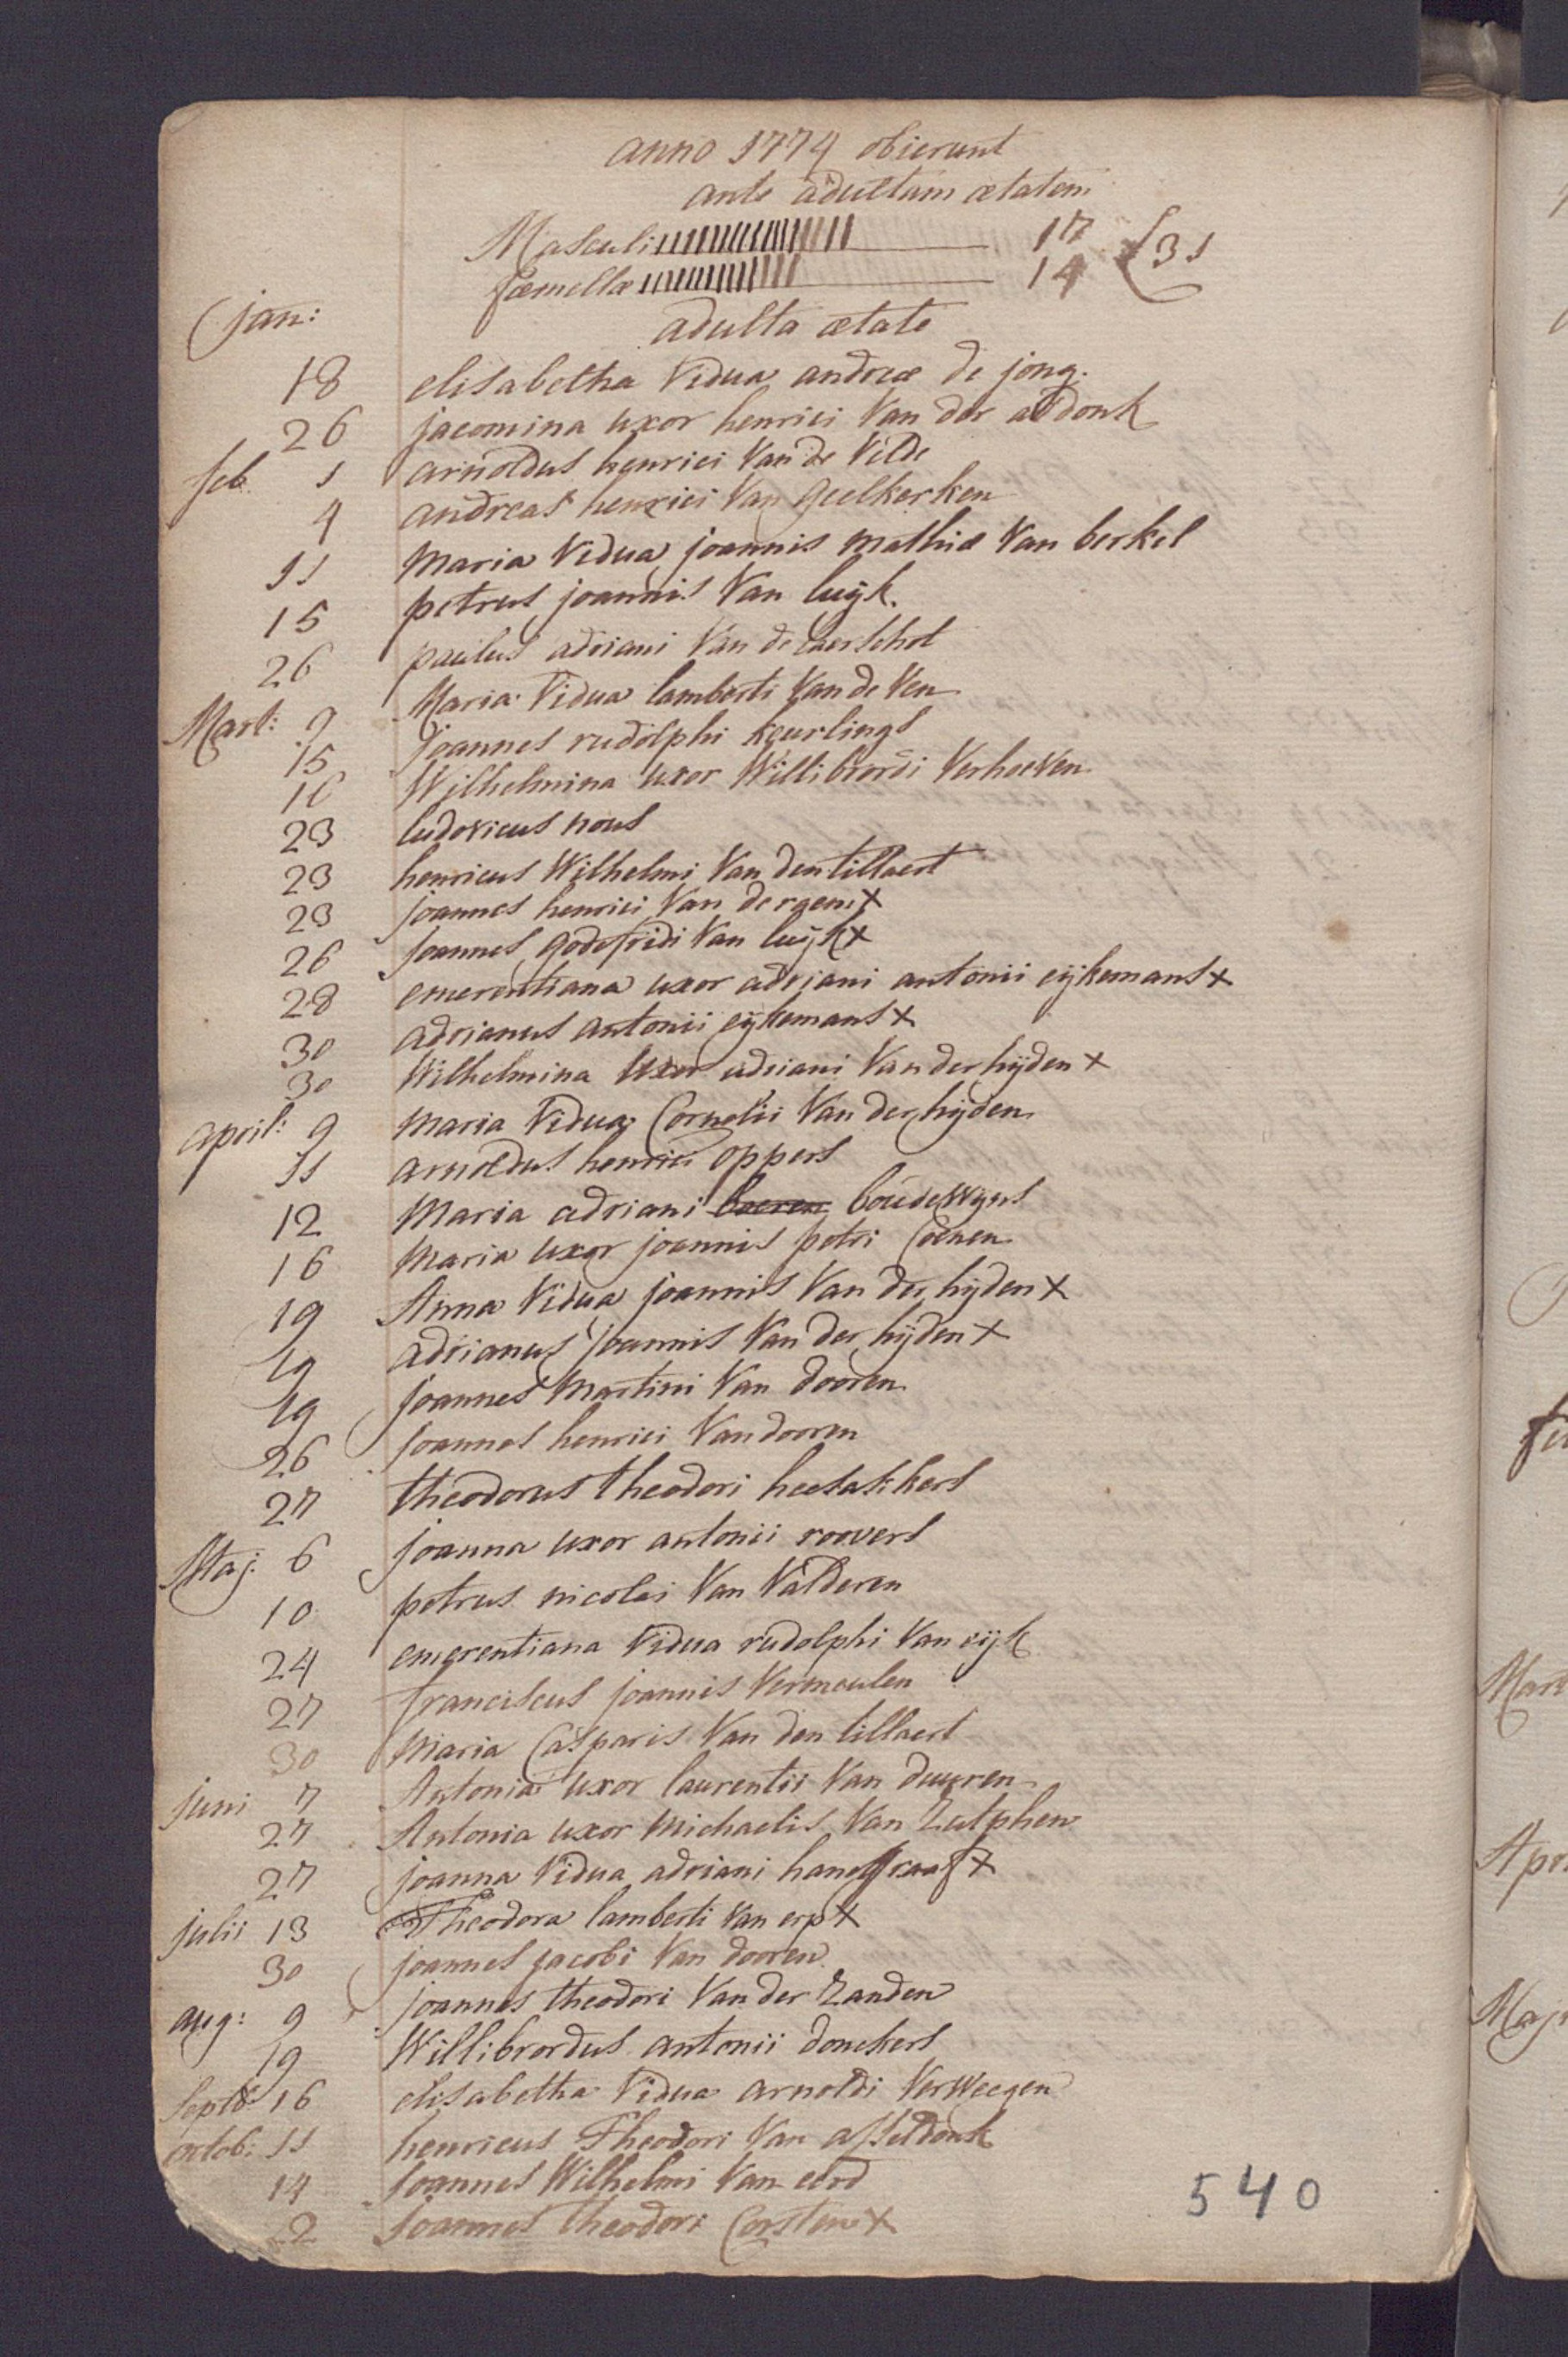 anno 1774 obierunt
ante adultam ætatem
Masculi 17
fœmellæ 14 31
jan: adulta ætate
18 elisabetha Vidua andreæ de jong.
26 jacomina uxor henrici Van der a donk
feb. 1 arnoldus henrici Van de Velde
4 andreas henrici Van geelkerken
11 Maria Vidua joannis Mathiæ Van berkel
15 petrus joannis Van luijk.
26 paulus adriani Van de
Mart: 9 Maria Vidua lamberti Van de Ven
15 joannes rudolphi keurlings
16 Wilhelmina uxor Willibrordi Verhoeven
23 ludovicus nous
23 henricus Wilhelmi Van den tillaert
23 joannes henrici Van de rgen x
26 joannes godefridi Van luijk x
28 emerentiana uxor adriani antonii eijkemans x
30 adrianus antonii eijkemans x
30 Wilhelmina Uxor adriani Van der hijden x
april: 9 Maria Vidua Cornelii Van der hijden
11 arnoldus henrici oppers
12 Maria adriani boeren boudewyns
16 Maria uxor joannis petri Coenen
19 Anna Vidua joannis Van der hijden x
19 adrianus joannis Van der hijden x
19 joannes Martini Van dooren
26 joannes henrici Van dooren
27 theodorus theodori heesakkers
Maj. 6 joanna uxor antonii roovers
10 petrus nicolai Van Valderen
24 emerentiana Vidua rudolphi Van eijk
27 franciscus joannis Vermeulen
30 Maria Casparis Van den tillaert
juni 7 Antonia uxor laurentii Van duuren
27 Antonia uxor Michaelis Van Zutphen
27 joanna Vidua adriani handgraaf x
julii 13 Theodora lamberti Van erp x
30 joannes jacobi Van dooren
aug: 9 joannes theodori Van der Zanden
19 Willibrordus antonii donckers
septb: 16 elisabetha Vidua arnoldi Verweegen
octob: 11 henricus Theodori Van asseldonk
14 joannes Wilhelmi Van eerd
22 joannes theodori Corsten x
540
Mart
Apr
Maj